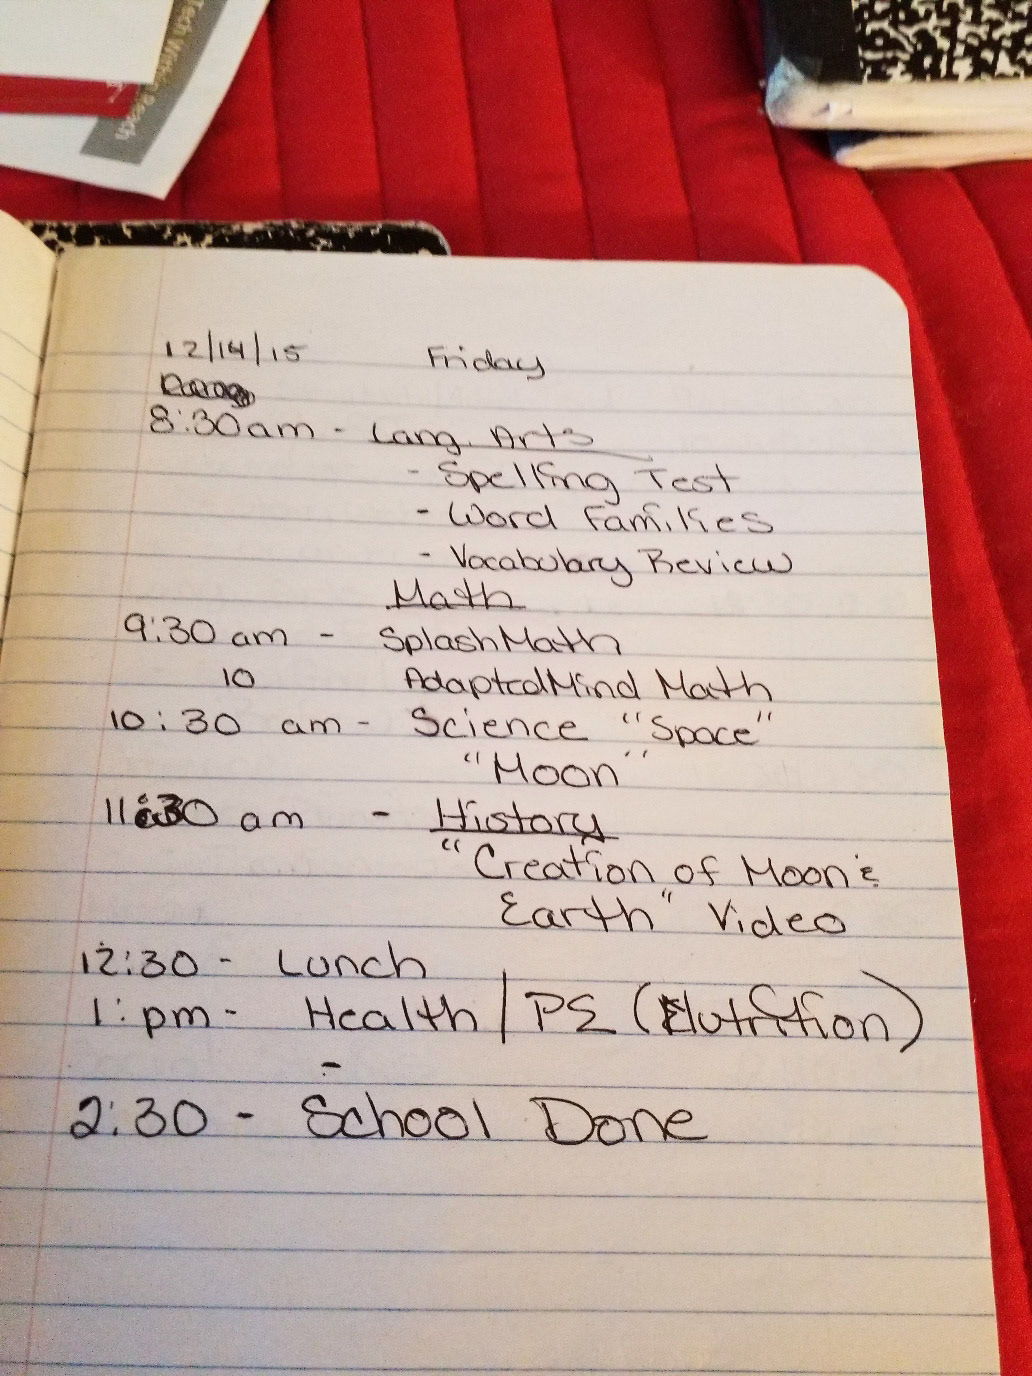 Tech Within Reach
12/14/15 Friday
8:30am - Lang. Arts
- Spelling Test
- Word Families
- Vocabulary Review
Math
9:30 am - SplashMath
10 AdaptedMind Math
10:30 am - Science "Space"
"Moon"
11:30 am - History
"Creation of Moon &
Earth" Video
12:30 - Lunch
1: pm - Health / PE (Nutrition)
-
2:30 - School Done